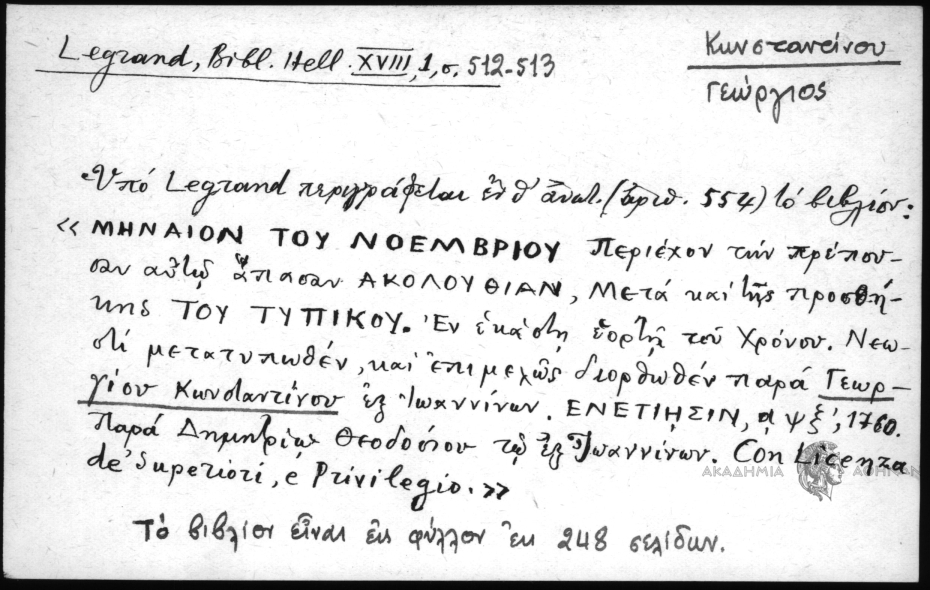 Legrand, Bibl. Hell. XVIII, 1, σ. 512-513
Κωνσταντίνου
Γεώργιος
Ὑπό Legrand περιγράφεται ἐν θ' ἀνωτ. (ἀριθ. 554) τό βιβλίον:
« ΜΗΝΑΙΟΝ ΤΟΥ ΝΟΕΜΒΡΙΟΥ Περιέχον τήν πρέπου-
σαν αὐτῷ ἅπασαν ΑΚΟΛΟΥΘΙΑΝ, Μετά καί τῆς προσθή-
κης ΤΟΥ ΤΥΠΙΚΟΥ. Ἐν ἑκάστῃ ἑορτῇ τοῦ Χρόνου. Νεω-
στί μετατυπωθέν, καί ἐπιμελῶς διορθωθέν παρά Γεωρ-
γίου Κωνσταντίνου ἐξ Ἰωαννίνων. ΕΝΕΤΙΗΣΙΝ, αψξ', 1760.
Παρά Δημητρίῳ Θεοδοσίου τῷ ἐξ Ἰωαννίνων. Con Licenza
de' Superiori, e Privilegio. »
ΑΚΑΔΗΜΙΑ ΑΘΗΝΩΝ
Τό βιβλίον εἶναι εἰς φύλλον ἐκ 248 σελίδων.